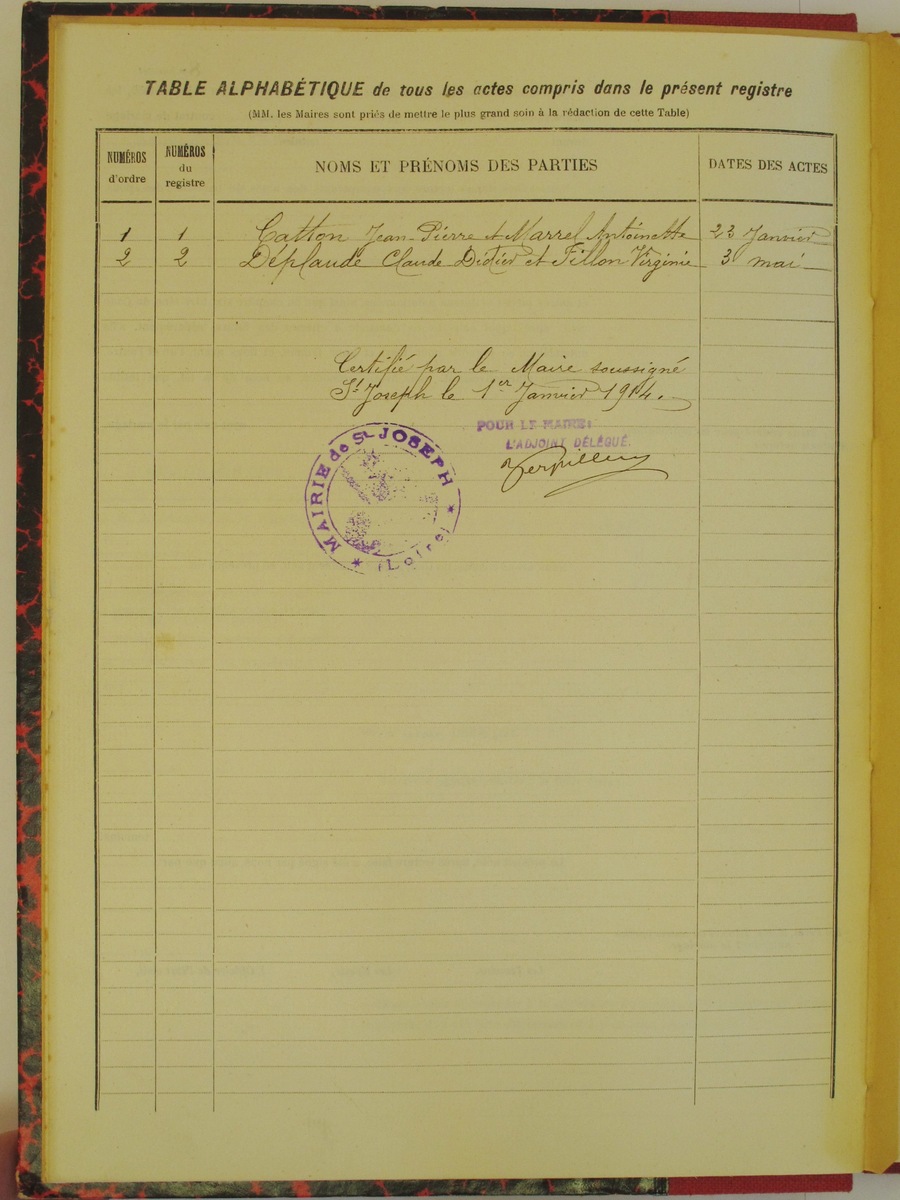 TABLE ALPHABÉTIQUE de tous les actes compris dans le présent registre
(MM. les Maires sont priés de mettre le plus grand soin à la rédaction de cette Table)
NUMÉROS d'ordre NUMÉROS du registre NOMS ET PRÉNOMS DES PARTIES DATES DES ACTES
1 1 Catton Jean-Pierre et Marrel Antoinette 23 Janvier
2 2 Déplaude Claude Didier et Fillon Virginie 3 mai
Certifié par le Maire soussigné
St Joseph le 1er Janvier 1914.
POUR LE MAIRE:
L'ADJOINT DÉLÉGUÉ.
MAIRIE de St. JOSEPH
(Loire)